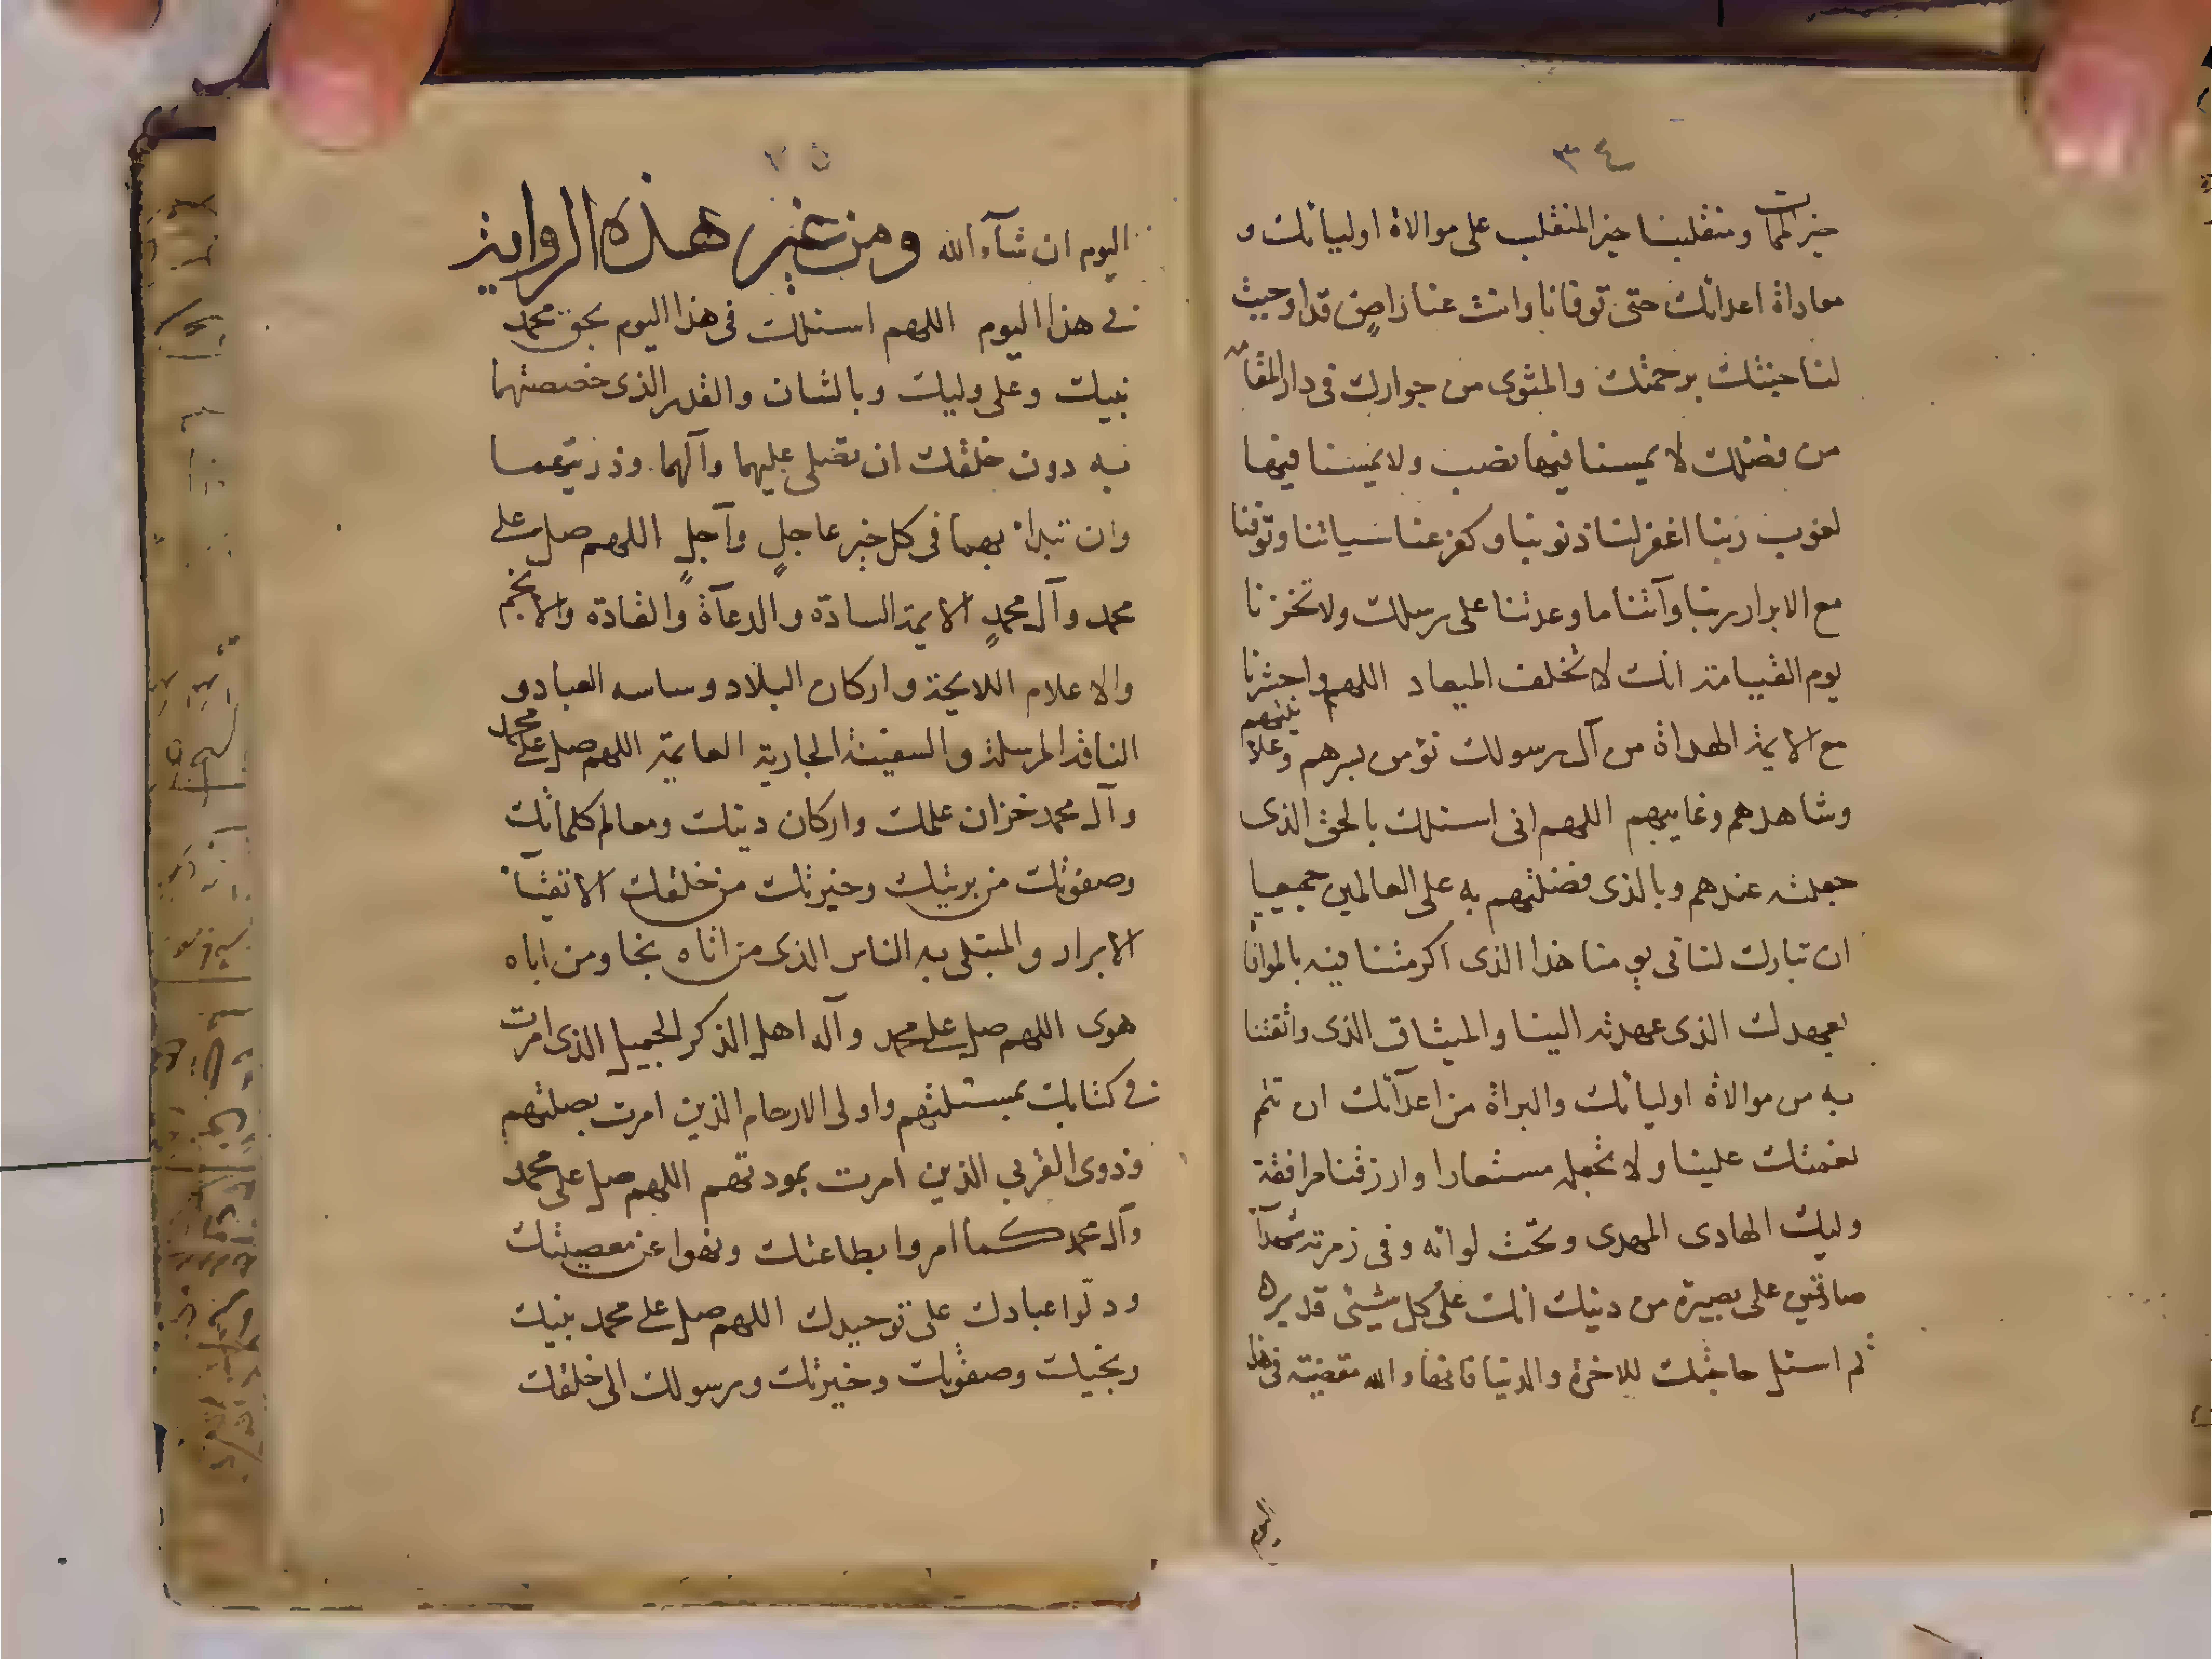 ٣٤
خير الممات ومنقلبنا خير المنقلب على موالاة اوليائك و
معاداة اعدائك حتى توفانا وانت عنا راض قد اوجبت
لنا جنتك برحمتك والمثوى من جوارك فى دار المقامه
من فضلك لا يمسنا فيها نصب ولا يمسنا فيها
لغوب ربنا اغفر لنا ذنوبنا و كفر عنا سياتنا وتوفنا
مع الابرار ربنا وآتنا ما وعدتنا على رسلك ولا تخزنا
يوم القيامة انك لا تخلف الميعاد اللهم واحشرنا
مع الايمة الهداة من آل رسولك نؤمن بسرهم وعلانيتهم
وشاهدهم وغايبهم اللهم انى اسئلك بالحق الذى
جعلته عندهم وبالذى فضلتهم به على العالمين جميعا
ان تبارك لنا فى يومنا هذا الذى اكرمتنا فيه بالموافا
بعهدك الذى عهدته الينا والميثاق الذى واثقتنا
به من موالاة اوليائك والبراة من اعدآئك ان تتم
نعمتك علينا ولا تجعله مستعارا وارزقنا مرافقة
وليك الهادى المهدى وتحت لوائه وفى زمرته شهدآء
صادقين على بصيرة من دينك انك على كل شيئ قدير
ثم اسئل حاجتك للاخرة والدنيا فانها والله مقضية فى هذا
اليوم
٣٥
اليوم ان شآء الله ومن غير هذه الرواية
فى هذا اليوم اللهم اسئلك فى هذا اليوم بحق محمد
نبيك وعلى وليك وبالشان والقدر الذى خصصتهما
به دون خلقك ان تصلى عليهما وآلهما وذريتهما
وان تبدأ بهما فى كل خير عاجلٍ وآجلٍ اللهم صل على
محمد وآل محمدٍ الايمة السادة والدعآة والقادة والانجم
والاعلام اللايحة واركان البلاد وساسه العباد و
الناقة المرسلة والسفينة الجارية العايمة اللهم صل على محمد
وآل محمد خزان علمك واركان دينك ومعالم كلماتك
وصفوتك من بريتك وخيرتك من خلقك الاتقيآء
الابرار والمبتلى به الناس الذى من اتاه نجا ومن اباه
هوى اللهم صل على محمد وآله اهل الذكر الجميل الذى امرت
فى كتابك بمسئلتهم واولى الارحام الذين امرت بصلتهم
وذوى القربى الذين امرت بمودتهم اللهم صل على محمد
وآل محمد كما امروا بطاعتك ونهوا عن معصيتك
ودلوا عبادك على توحيدك اللهم صل على محمد نبيك
ونجيك وصفوتك وخيرتك ورسولك الى خلقك